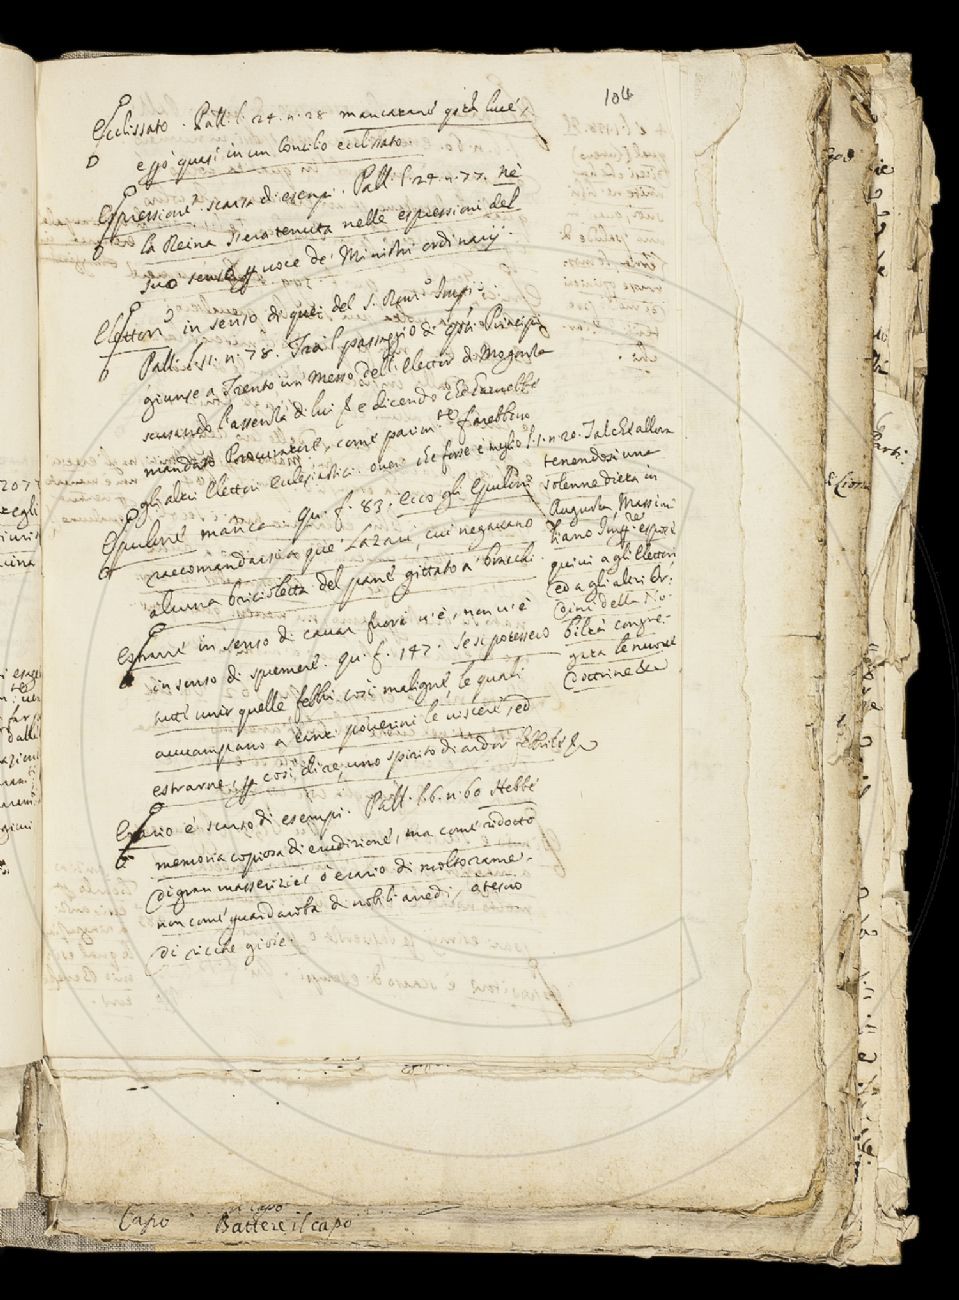 104
Ecclissato. Pall. l. 24. n. 28 mancarané già luce,
D
essò quasi in un Concilio ecclissato.
Espressioné scarsa di esempi. Pall. l. 24. n. 77. nè
la Reina s'era tenuta nelle espressioni del
suo senso voce de' Ministri ordinarij.
Elettori in senso di quei del S. Rom. Imp.
Pall. l. n. 78. Tra il passaggio di Principi
giunse a Trento un Messo dell'Elettor di Mogonza
scusando l'assenza di lui & e dicendo
mandato Procuratore, come parim.te farebbono
gli altri Elettori Eclesiastici. overo che forse è meglio l. 1. n. 20. Talché allora
tenendosi una
solenne dieta in
Augusta, Massimi
liano Imp.re espose
quivi agli Elettori
ed agli altri Or-
dini della No-
biltà congre-
gata le nuove
dottrine &c
Epuloné manca. Qu. f. 83. Ecco gli Epuloni
raccomandarsi a que' Lazari, cui negavano
alcuna bricioletta del pané gittato a' bracchi.
Estrarré in senso di cavar fuori v'è, non v'è
in senso di spremeré. Qu. f. 147. Se si potessero
tutti unir quelle febbri così maligné, le quali
avvampano a tanti poverini le visceré, ed
estrarne, p così dire, uno spirito di ardor febbrile &c
Erario è scarso di esempi. Pall. l. 6. n. 60 Hebbé
memoria copiosa di erudizioné, ma comé ridotto
di gran masserizie, ò erario di molto rame.
non comé guardaroba di nobili arredi, ò tesoro
di ricche gioie.
Capo
il capo
Battere il capo